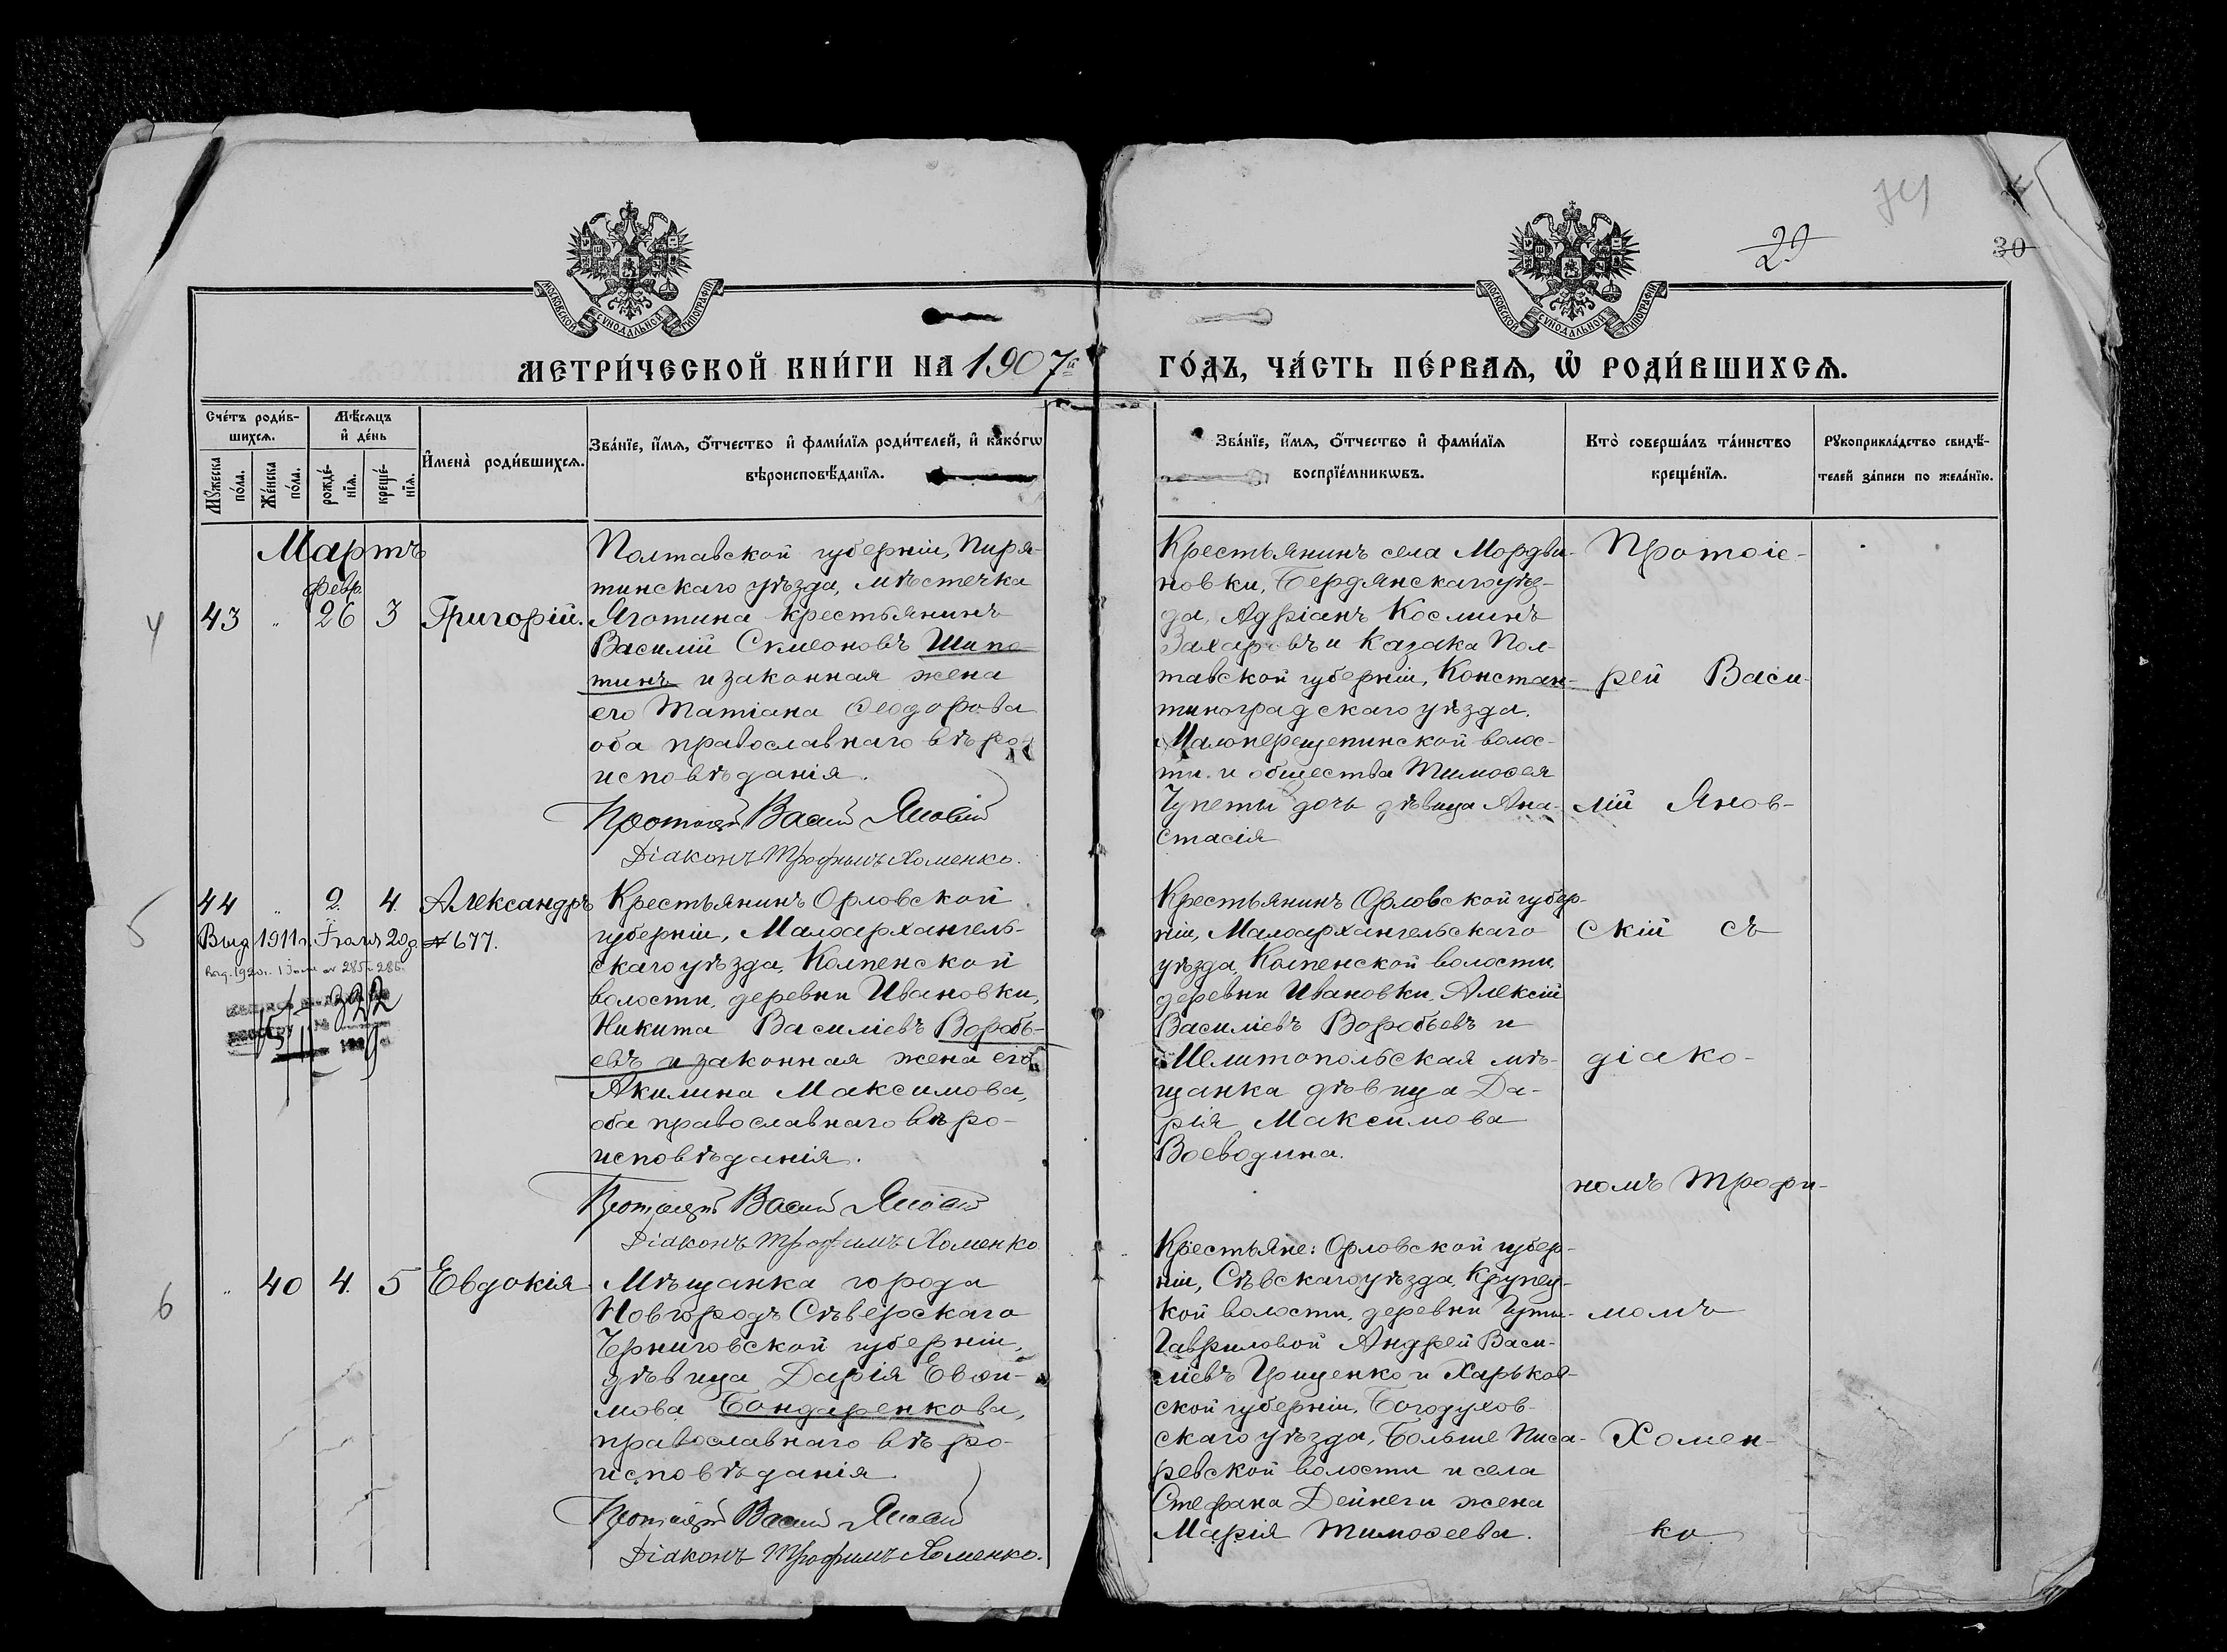 29
30
МОСКОВСКОЙ СѴНОДАЛЬНОЙ ТИПОГРАФІИ
МОСКОВСКОЙ СѴНОДАЛЬНОЙ ТИПОГРАФІИ
МЕТРИ́ЧЕСКОЙ КНИ́ГИ НА 1907й ГО́ДЪ, ЧА́СТЬ ПЕ́РВАѦ, Ѽ РОДИ́ВШИХСѦ.
Сче́тъ роди́в-
шихсѧ.
Мꙋ́жеска
по́ла.
Же́нска
по́ла.
Мѣ́сѧцъ
и҆ де́нь
рожде́-
нїѧ.
креще́-
нїѧ.
И҆мена̀ роди́вшихсѧ.
Зва́нїе, и҆́мѧ, ѻ҆́тчество и҆ фами́лїѧ роди́телей, и҆ како́гѡ
вѣроисповѣ́данїѧ.
Зва́нїе, и҆́мѧ, ѻ҆́тчество и҆ фами́лїѧ
воспрїе́мникѡвъ.
Кто̀ соверша́лъ та́инство
креще́нїѧ.
Рꙋкоприкла́дство свидѣ́-
телей за́писи по жела́нїю.
Мартъ
февр.
4
43 " 26 3 Григорій.
Полтавской губерніи, Пиря-
тинскаго уѣзда, мѣстечка
Яготина крестьянинъ
Василій Симеоновъ Шипо-
тинъ и законная жена
его Татіана Ѳеодорова
оба православнаго вѣро-
исповѣданія.
Протоіерей Василій Яновскій
Діаконъ Трофимъ Хоменко.
Крестьянинъ села Мордви-
новки, Бердянскаго уѣз-
да, Адріанъ Косминъ
Захаровъ и казака Пол-
тавской губерніи, Констан-
тиноградскаго уѣзда,
Малоперещепинской волос-
ти и общества Тимоѳея
Чупеты дочь дѣвица Ана-
стасія
5
44 " 2. 4. Александръ
Выд. 1911 г. 20 № 677.
322
Крестьянинъ Орловской
губерніи, Малоархангель-
скаго уѣзда, Колпенской
волости, деревни Ивановки,
Никита Василіевъ Воробь-
евъ и законная жена его
Акилина Максимова,
оба православнаго вѣро-
исповѣданія.
Протоіерей Василій Яновскій
Діаконъ Трофимъ Хоменко
Крестьянинъ Орловской губер-
ніи, Малоархангельскаго
уѣзда, Колпенской волости,
деревни Ивановки, Алексій
Василіевъ Воробьевъ и
Мелитопольская мѣ-
щанка дѣвица Да-
рія Максимова
Воеводина.
6
" 40 4. 5 Евдокія
Мѣщанка города
Новгородъ Сѣверскаго
Черниговской губерніи,
дѣвица Дарія Евѳи-
мова Бондаренкова,
православнаго вѣро-
исповѣданія
Протоіерей Василій Яновскій
Діаконъ Трофимъ Хоменко.
Крестьяне: Орловской губер-
ніи, Сѣвскаго уѣзда, Крупец-
кой волости, деревни Гуты-
Гавриловой Андрей Васи-
ліевъ и Харьков-
ской губерніи, Богодухов-
скаго уѣзда, Больше Писа-
ревской волости и села
Стефана Дейнеги жена
Марія Тимоѳеева.
Протоіе-
рей Васи-
лій Янов-
скій съ
діако-
номъ Трофи-
момъ
Хомен-
ко